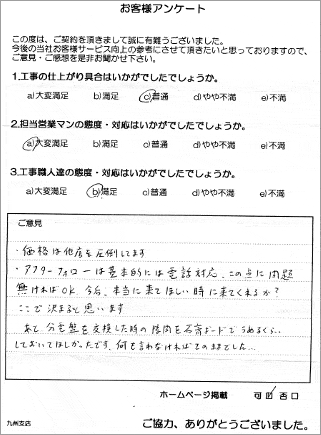 お客様アンケート
この度は、ご契約を頂きまして誠に有難うございました。
今後の当社お客様サービス向上の参考にさせて頂きたいと思っておりますので、
ご意見・ご感想を是非お聞かせ下さい。
1.工事の仕上がり具合はいかがでしたでしょうか。
a)大変満足 b)満足 c)普通 d)やや不満 e)不満
2.担当営業マンの態度・対応はいかがでしたでしょうか。
a)大変満足 b)満足 c)普通 d)やや不満 e)不満
3.工事職人達の態度・対応はいかがでしたでしょうか。
a)大変満足 b)満足 c)普通 d)やや不満 e)不満
ご意見
・価格は他店を圧倒してます
・アフターフォローは基本的には電話対応、この点に問題
無ければOK、今后、本当に来てほしい時に来てくれるか?
ここで決まると思います
あと分電盤を交換した時の隙間を石膏ボードでうめるくらい
しておいてほしかったです、何も言わなければそのままでした…
ホームページ掲載 可 否
九州支店
ご協力、ありがとうございました。